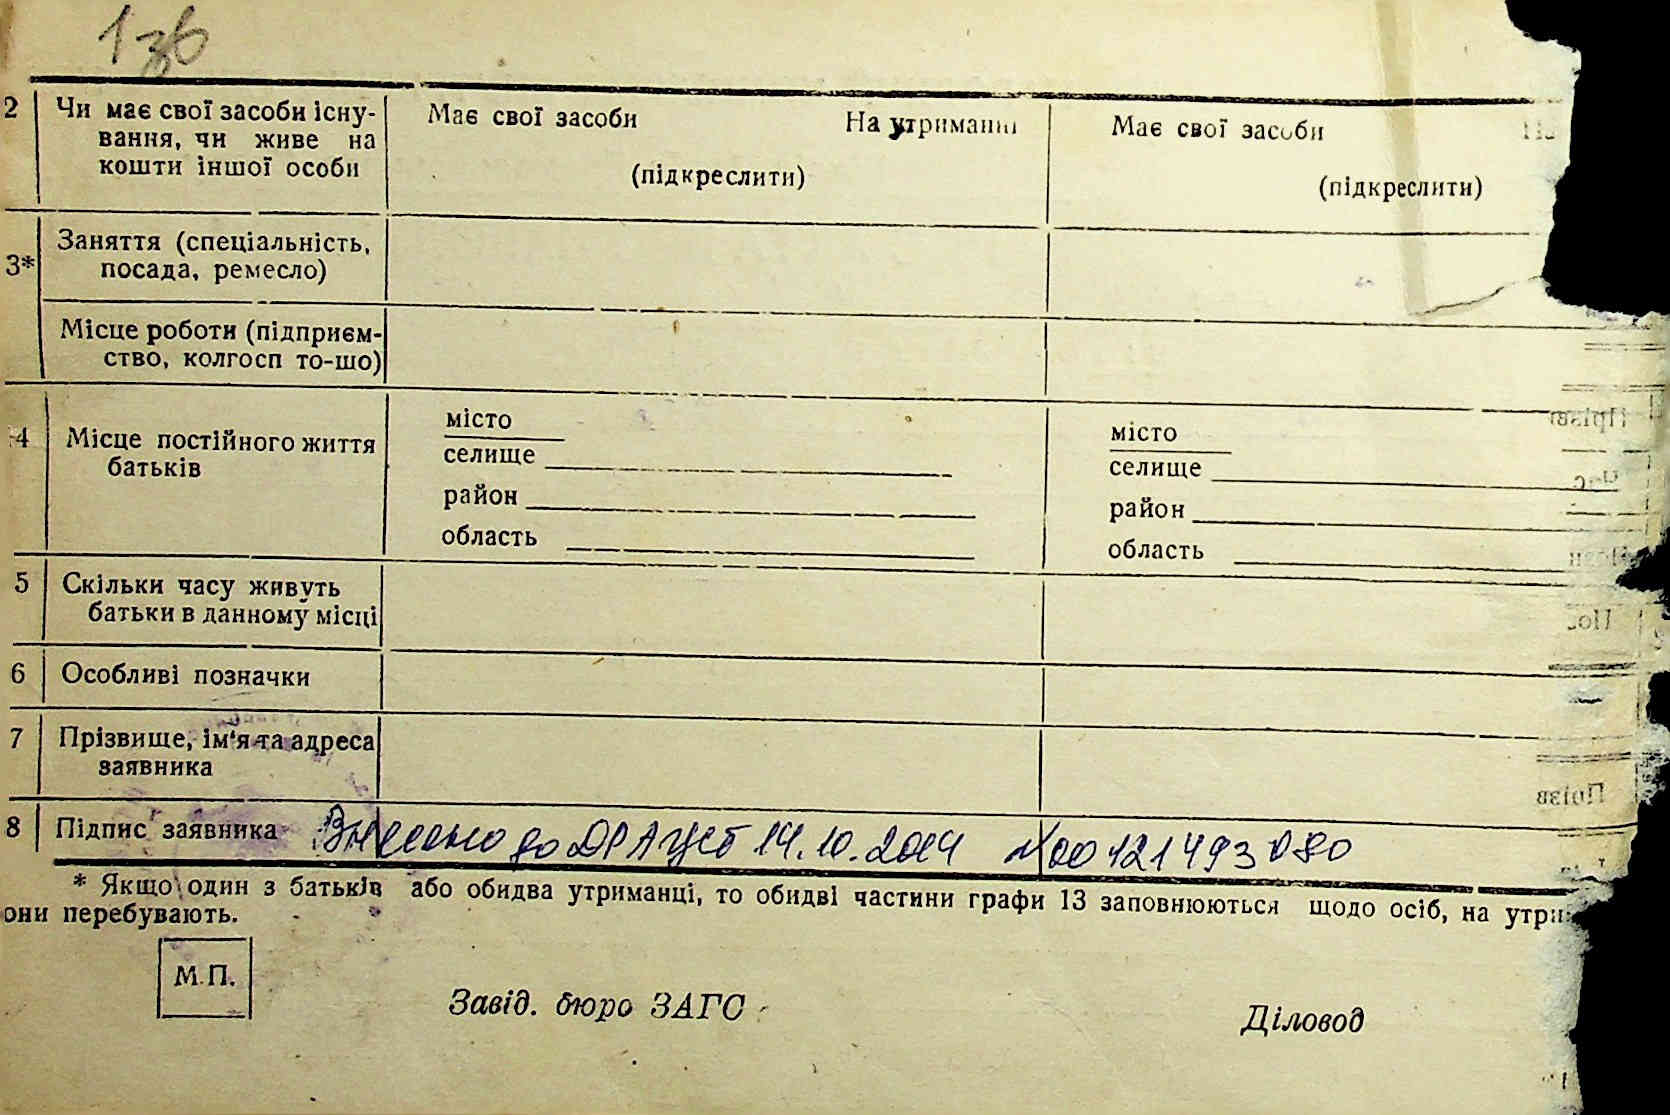 1зв
2 Чи має свої засоби існу-
вання, чи живе на
кошти іншої особи
Має свої засоби На утриманні
(підкреслити)
Має свої засоби
(підкреслити)
3* Заняття (спеціальність,
посада, ремесло)
Місце роботи (підприєм-
ство, колгосп то-що)
4 Місце постійного життя
батьків
місто
селище
район
область
місто
селище
район
область
5 Скільки часу живуть
батьки в данному місці
6 Особливі позначки
7 Прізвище, ім'я та адреса
заявника
8 Підпис заявника Внесено до ДРАЦСГ 14.10.2014 №00121493080
* Якщо один з батьків або обидва утриманці, то обидві частини графи 13 заповнюються щодо осіб, на
они перебувають.
М.П.
Завід. бюро ЗАГС
Діловод